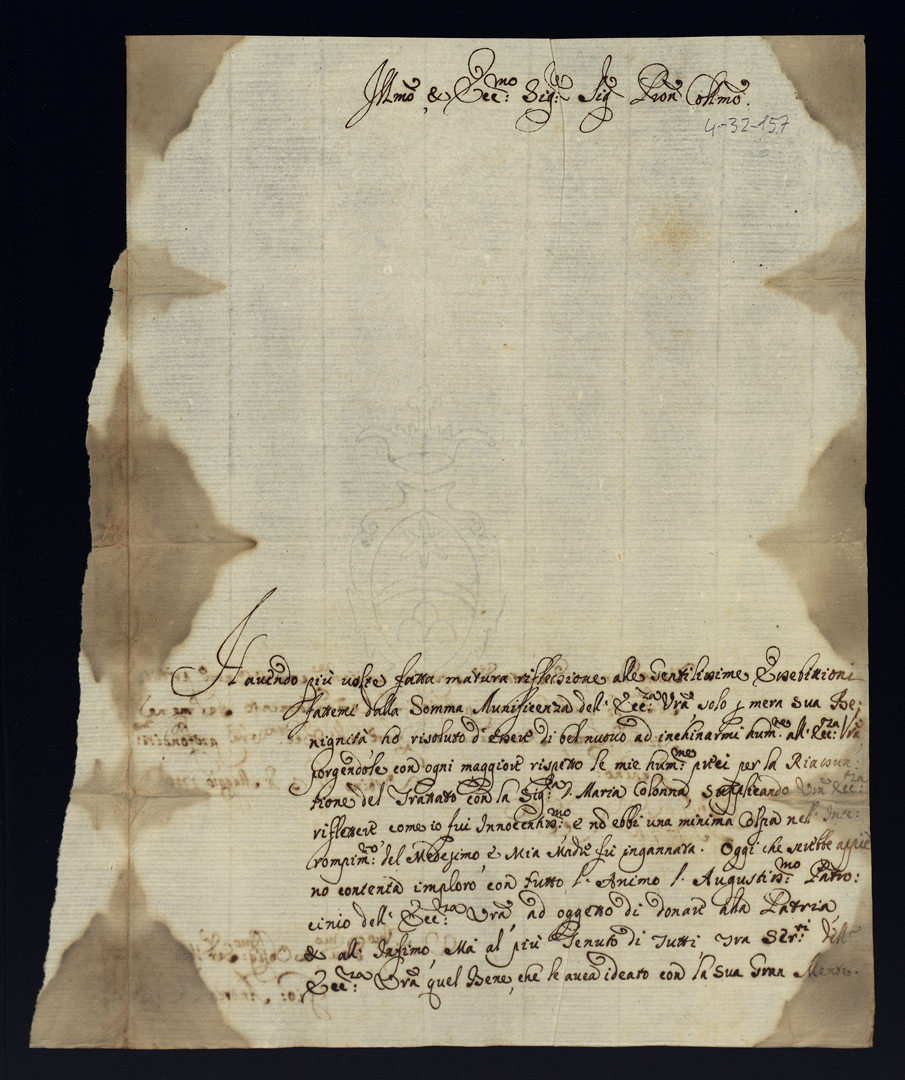 Illmo, & Ecc:mo Sig:re Sig Pron Collmo.
4-32-157
Havendo più volte fatta matura riflessione alle Gentilissime Esebittioni
fattemi dalla Somma Munificenza dell' Ecc:za Vra solo p mera sua Be:
nignità hò risoluto d'essere di bel nuovo ad inchinarmi hum:ne all' Ecc:za Vra
porgendole con ogni maggiore rispetto le mie hum:me preci per la Riassun:
tione del Trattato con la Sig:ra D. Maria Colonna, Supplicando Vra Ecc:za
riflettere come io fui Innocentis:mo e nò ebbi una minima Colpa nell' Inte:
rompim:to del Medesimo e Mia Madre fù ingannata. Oggi che sarebbe appie
no contenta imploro con tutto l'Animo l'Augustiss:mo Patro:
cinio dell' Ecc:za Vra ad oggetto di donare alla Patria,
& all' Infimo, Ma al più Tenuto di Tutti Tra Ser:ri dell'
Ecc:za Vra quel Bene, che le avea ideato con la Sua Gran Mente.